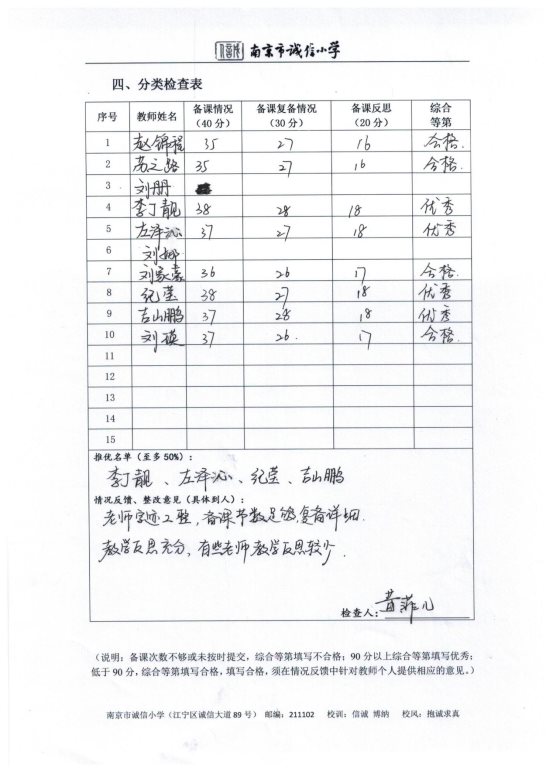 南京市诚信小学
四、分类检查表
序号 教师姓名 备课情况（40 分） 备课复备情况（30 分） 备课反思（20 分） 综合等第
1 赵锦程 35 27 16 合格.
2 高之路 35 27 16 合格.
3 刘朋
4 李丁靓 38 28 18 优秀
5 左泽沁 37 27 18 优秀
6 刘娜
7 刘家 36 26 17 合格.
8 纪莹 38 27 18 优秀
9 吉山鹏 37 28 18 优秀
10 刘瑛 37 26. 17 合格.
11
12
13
14
15
推优名单（至多 50%）：
李丁靓 、左泽沁、纪莹、吉山鹏
情况反馈、整改意见（具体到人）：
老师字迹工整，备课节数足够，复备详细.
教学反思充分，有些老师教学反思较少.
检查人：黄菲儿
（说明：备课次数不够或未按时提交，综合等第填写不合格；90 分以上综合等第填写优秀；
低于 90 分，综合等第填写合格，填写合格，须在情况反馈中针对教师个人提供相应的意见。）
南京市诚信小学（江宁区诚信大道 89 号） 邮编：211102 校训：信诚 博纳 校风：抱诚求真